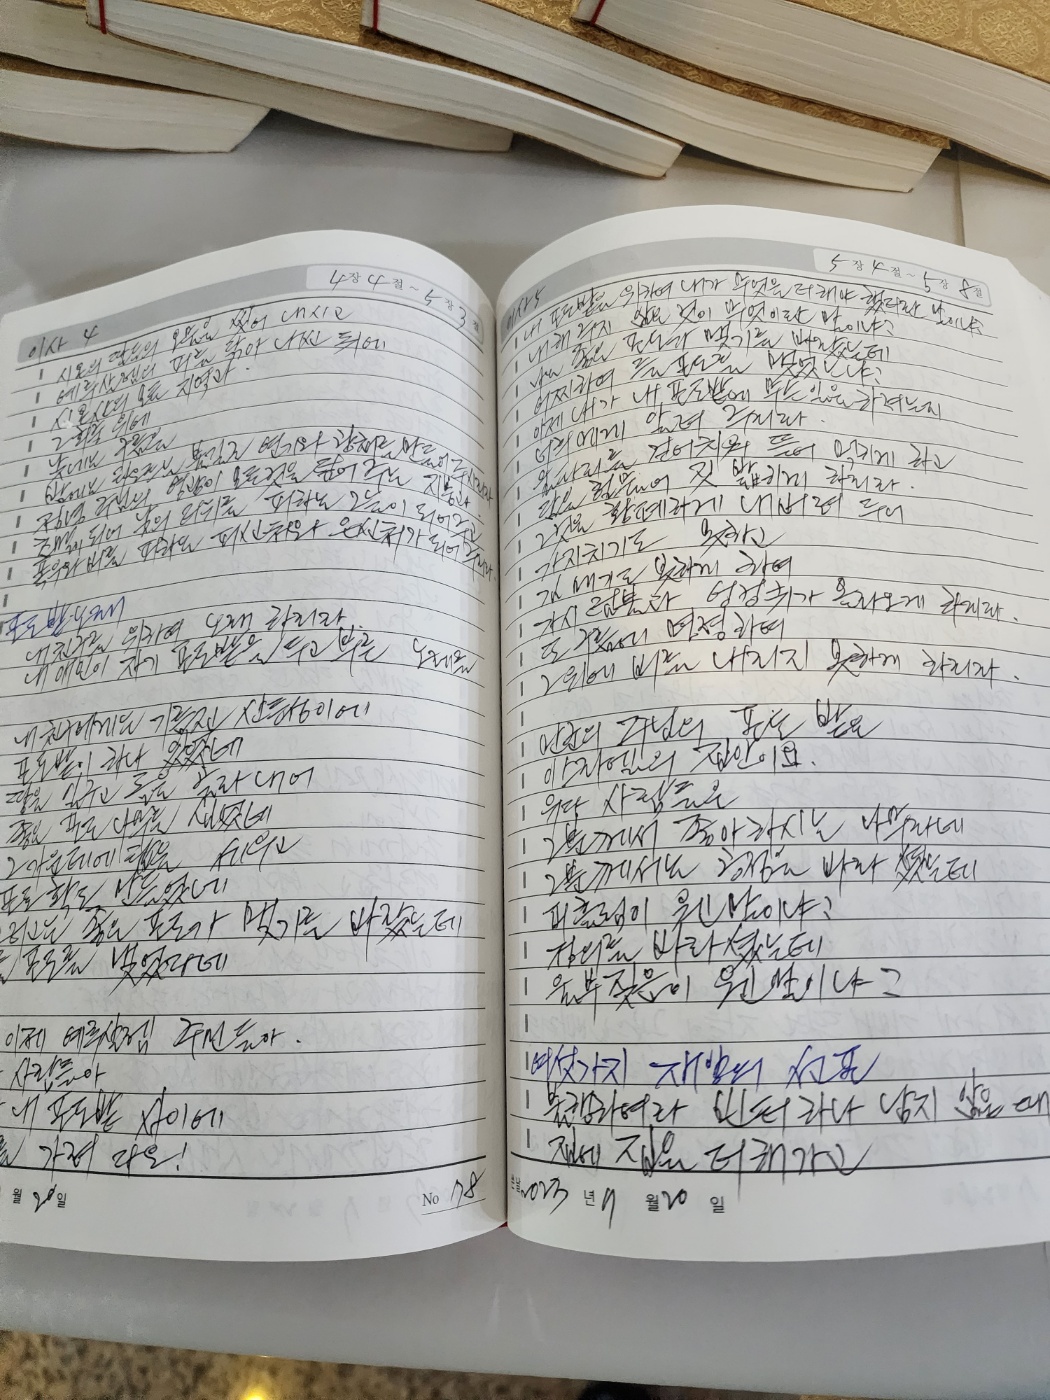 이사 4
4장 4절 ~ 5장 3절
시온의 딸들의 오물을 씻어 내시고
예루살렘의 피를 닦아 내신 뒤에
시온산의 모든 지역과
그 회중 위에
낮에는 구름을
밤에는 타오르는 불길과 연기와 광채를 만들어 주시리라
정녕 주님의 영광이 모든것을 덮어 주는 지붕과
초막이 되어 낮의 더위를 피하는 그늘이 되어 주고
폭우와 비를 피하는 피신처와 은신처가 되어 주리라.
포도밭 노래
내 친구를 위하여 노래 하리라
내 애인이 자기 포도밭을 두고 부른 노래를
내 친구에게는 기름진 산등성이에
포도밭이 하나 있었네
땅을 일구고 돌을 골라 내어
좋은 포도 나무를 심었네
그 가운데에 탑을 세우고
포도 확도 만들었네
그리고는 좋은 포도가 맺기를 바랐는데
들포도를 맺었다네
이제 예루살렘 주민들아.
사람들아
내 포도밭 사이에
가려 다오!
월 20일
No 178
이사 5
5장 4절 ~ 5장 8절
내 포도밭을 위하여 내가 무엇을 더 해야 했더란 말이냐?
내가 해 주지 않은 것이 무엇이란 말이냐?
나는 좋은 포도가 맺기를 바랐는데
어찌하여 들포도를 맺었느냐?
이제 내가 내 포도밭에 무슨 일을 하려는지
너희에게 알려 주리라.
울타리를 걷어치워 뜯어 먹히게 하고
담을 허물어 짓 밟히게 하리라.
그것을 황폐하게 내버려 두어
가지치기도 못하고
김 매기도 못하게 하여
가시 덤불과 엉겅퀴가 올라오게 하리라.
또 구름에게 명령하여
그 위에 비를 내리지 못하게 하리라.
만군의 주님의 포도 밭은
이스라엘의 집안이요.
유다 사람들은
그분께서 좋아하시는 나무라네
그분께서는 공정을 바라 셨는데
피흘림이 웬 말이냐?
정의를 바라 셨는데
울부짖음이 웬 말이냐?
여섯가지 재앙의 선포
불행하여라 빈터 하나 남지 않을 때
집에 집을 더해가고
2023년 9월 20일